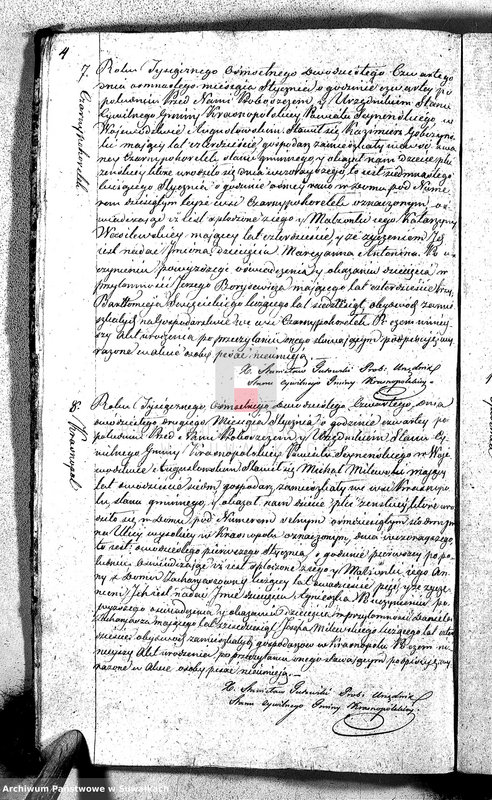 4
7. Roku Tysiącznego Ośmsetnego Dwudziestego Czwartego
Czarnypohorełek
dnia ośmnastego miesiąca Stycznia o godzinie czwarty po
południu Przed Nami Proboszczem y Urzędnikiem Stanu
Cywilnego Gminy Krasnopolskiej Powiatu Seyneńskiego w
Wojewodztwie Augustowskim Stawił się Kazimierz
mający lat czterdzieści gospodarz zamieszkały we wsi zwa
ney Czarnypohorełek, stanu gminnego, y okazał nam dziecię płci
żeńskiej, które urodziło się dnia wczorajszego, to jest siedmnastego
bieżącego Stycznia o godzinie osmey rano w domu pod Nume
rem dziesiątym leżące we wsi Czarnypohorełek oznaczonym, o
świadczając iż jest spłodzone z niego y Małżonki iego Katarzyny
Wasilewskiey, mającey lat czterdzieście, y że życzeniem Jego
jest nadać Jmiona dziecięciu Maryanna Antonina. Po u
czynieniu powyższego oświadczenia y okazaniu dziecięcia w
przytomności Jerzego Borysewicza mającego lat czterdzieści trzy,
Bartłomieja liczącego lat obydwóch zamie
szkałych na gospodarstwie we wsi Czarnypohorełek. Po czem niniey
szy Akt urodzenia po przeczytaniu onego stawającym podpisaliśmy, wy
rażone w akcie osoby pisać nieumieją.
X. Stanisław Gutowski Prob. Urzędnik
Stanu cywilnego Gminy Krasnopolskiey.
8. Roku Tysiącznego, Ośmsetnego Dwudziestego Czwartego, Dnia
Krasnopol
dwudziestego drugiego Miesiąca Stycznia o godzinie czwarty po
południu Przed Nami Proboszczem y Urzędnikiem Stanu Cy
wilnego Gminy Krasnopolskiey Powiatu Seyneńskiego w Woje
wodztwie Augustowskim Stawił się Michał Milewski mający
lat dwadzieścia siedm gospodarz, zamieszkały we wsi Krasnopo
lu, stanu gminnego, y okazał nam dziecię płci żeńskiey, które uro
dziło się w Domu pod Numerem
na Ulicy w Krasnopolu oznaczonym, dnia wczorayszego
to jest dwudziestego pierwszego Stycznia o godzinie pierwszey po po
łudniu. Oświadczając iż jest spłodzone z niego y Małżonki iego An
ny z Domu Zacharzewskiey liczącey lat dwadzieście pięć, y że życze
niem Jch jest nadać Jmie dziecięciu Agnieszka Po uczynieniu po
wyższego oświadczenia y okazaniu dziecięcia w przytomności Daniela
mającego lat Józefa Milewskiego liczącego lat czter
dzieści, obydwóch zamieszkałych gospodarzów w Krasnopolu. Po czem ni
nieyszy Akt urodzenia po przeczytaniu onego stawającym podpisaliśmy, wy
rażone w Akcie osoby pisać nieumieją.
X. Stanisław Gutowski Prob. Urzędnik
Stanu cywilnego Gminy Krasnopolskiey.
Archiwum Państwowe w Suwałkach